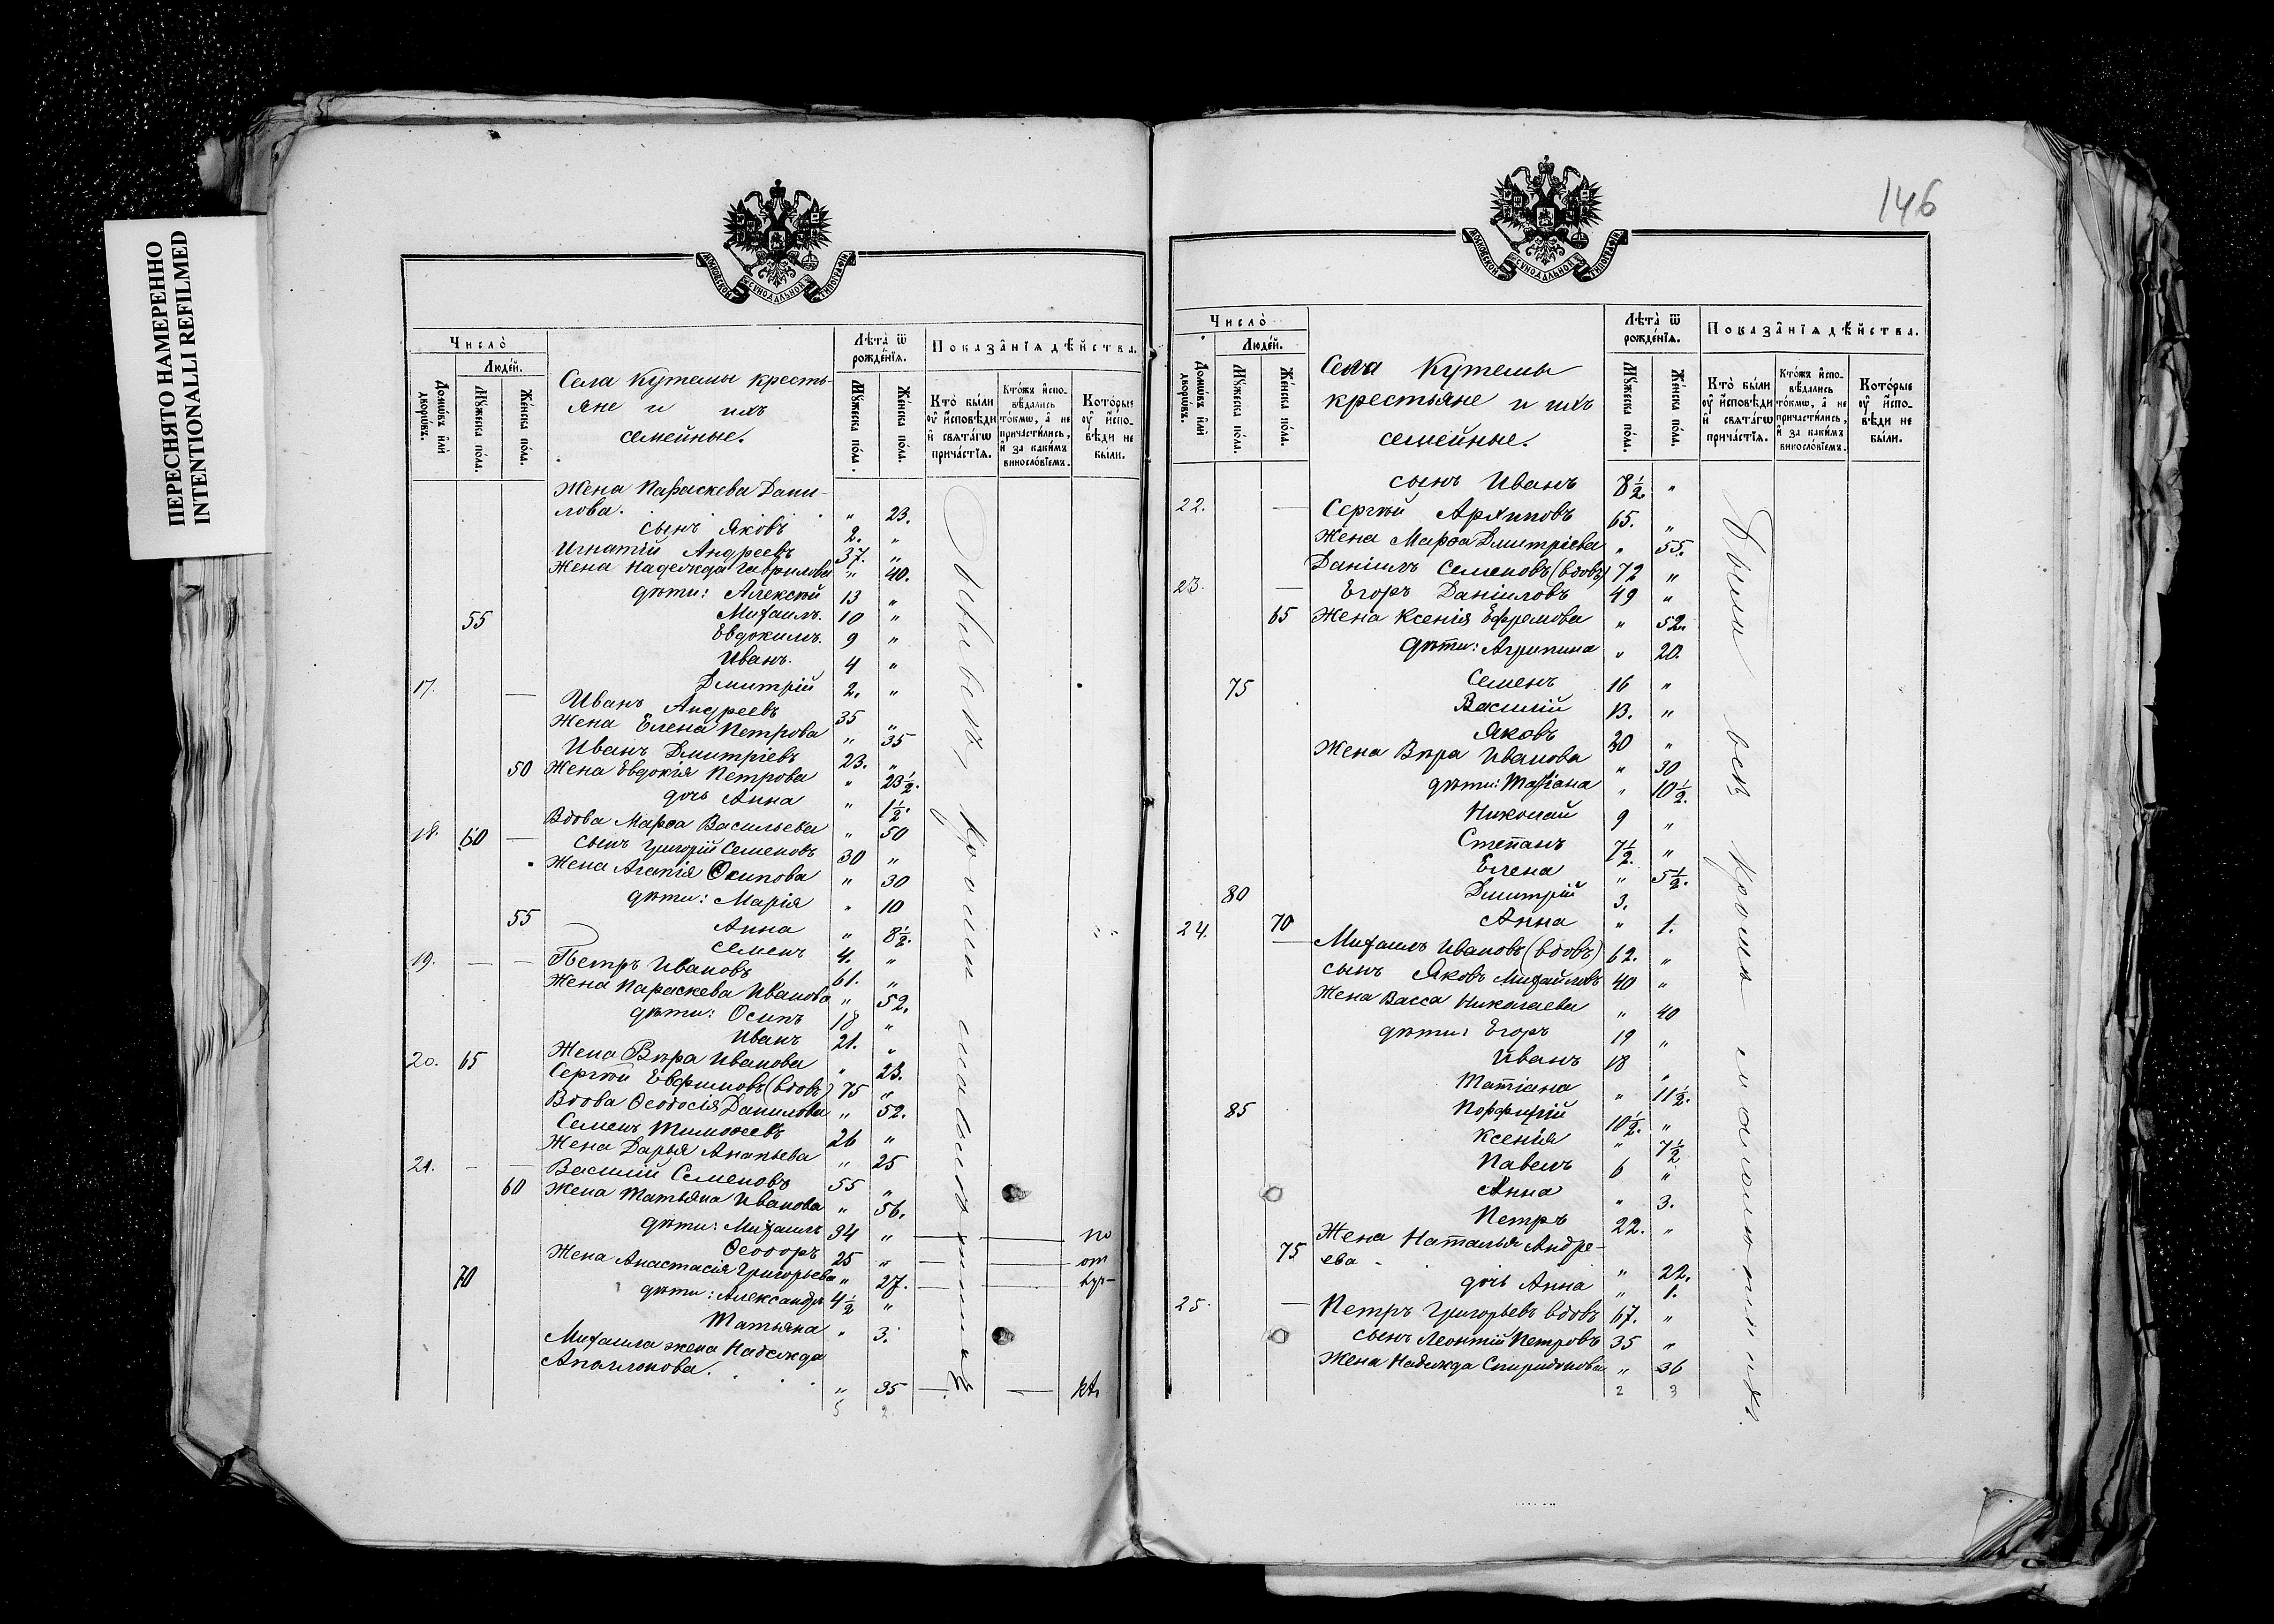 ПЕРЕСНЯТО НАМЕРЕННО
INTENTIONALLI REFILMED
МОСКОВСКОЙ СѴНОДАЛЬНОЙ ТИПОГРАФІИ
Число̀
Людей.
Домѡвъ и҆лѝ дворѡвъ.
Мꙋжеска пола.
Женска пола.
Села Кутемы кресть-
яне и ихъ
семейные.
Лѣта̀ ѿ рожденїѧ.
Мꙋжеска пола.
Женска пола.
Показанїѧ дѣйства.
Кто̀ были оу҆ и҆сповѣди и҆ свѧтагѡ причастїѧ.
Ктожъ и҆спо-вѣдались токмѡ, а҆ не причастились, и҆ за какимъ винословїемъ.
Которые оу҆ и҆спо-вѣди не были.
Жена Параскева Дани-
лова. " 23.
сынъ Яковъ 2. "
Игнатій Андреевъ 37. "
Жена Надежда Гаврилова " 40.
дѣти: Алексѣй 13 "
55 Михаилъ. 10 "
Евдокимъ. 9 "
Иванъ. 4 "
Дмитрій 2. "
17. — Иванъ Андреевъ 35 "
Жена Елена Петрова " 35
Иванъ Дмитріевъ 23. "
50 Жена Евдокія Петрова " 23½.
дочь Анна " 1½.
Вдова Марѳа Васильева " 50
18. 60 — сынъ Григорій Семеновъ 30 "
Жена Агапія Осипова " 30
дѣти: Марія " 10
55 Анна " 8½.
Семенъ 4. "
19. — — Петръ Ивановъ 61. "
Жена Параскева Иванова " 52.
дѣти: Осипъ 18 "
Иванъ 21. "
Жена Вѣра Иванова " 23.
20. 65 Сергѣй Евфимовъ (вдовъ) 75 "
Вдова Ѳеодосія Данилова " 52.
Семенъ Тимоѳеевъ 26 "
Жена Дарья Ананьева " 25
21. — — Василій Семеновъ 55 "
60 Жена Татьяна Иванова " 56.
дѣти: Михаилъ 34 " — — по
Ѳеодоръ 25 " — — от
Жена Анастасія Григорьева " 27. — — луч-
70 дѣти: Александръ 4½ "
Татьяна " 3.
Михаила жена Надежда
Аполлонова. " 35 — — кѣ
5 2
146
МОСКОВСКОЙ СѴНОДАЛЬНОЙ ТИПОГРАФІИ
Число̀
Людей.
Домѡвъ и҆лѝ дворѡвъ.
Мꙋжеска пола.
Женска пола.
Села Кутемы
крестьяне и ихъ
семейные.
Лѣта̀ ѿ рожденїѧ.
Мꙋжеска пола.
Женска пола.
Показанїѧ дѣйства.
Кто̀ были оу҆ и҆сповѣди и҆ свѧтагѡ причастїѧ.
Ктожъ и҆спо-вѣдались токмѡ, а҆ не причастились, и҆ за какимъ винословїемъ.
Которые оу҆ и҆спо-вѣди не были.
Были всѣ кромѣ малолѣтнихъ.
сынъ Иванъ 8½. "
22. — Сергѣй Архиповъ 65. "
Жена Марѳа Дмитріева " 55.
Даніилъ Семеновъ (вдовъ) 72 "
23. — Егоръ Даніиловъ 49 "
65 Жена Ксенія Ефремова " 52.
дѣти: Агрипина " 20.
75 Семенъ 16 "
Василій 13. "
Яковъ 30 "
Жена Вѣра Иванова " 30
дѣти: Татіана " 10½.
Николай 9 "
Степанъ 7½. "
Елена " 5½.
80 Дмитрій 3.
70 Анна " 1.
24. — Михаилъ Ивановъ (вдовъ) 62. "
сынъ Яковъ Михайловъ 40 "
Жена Васса Николаева " 40
дѣти: Егоръ 19 "
Иванъ 18 "
Татіана " 11½.
85 Порфирій 10½. "
Ксенія " 7½
Павелъ 6 "
Анна " 3.
Петръ 22. "
75 Жена Наталья Андре-
ева " 22.
дочь Анна " 1.
25. — Петръ Григорьевъ вдовъ 67. "
сынъ Леонтій Петровъ 35 "
Жена Надежда Спиридонова " 36
2 3